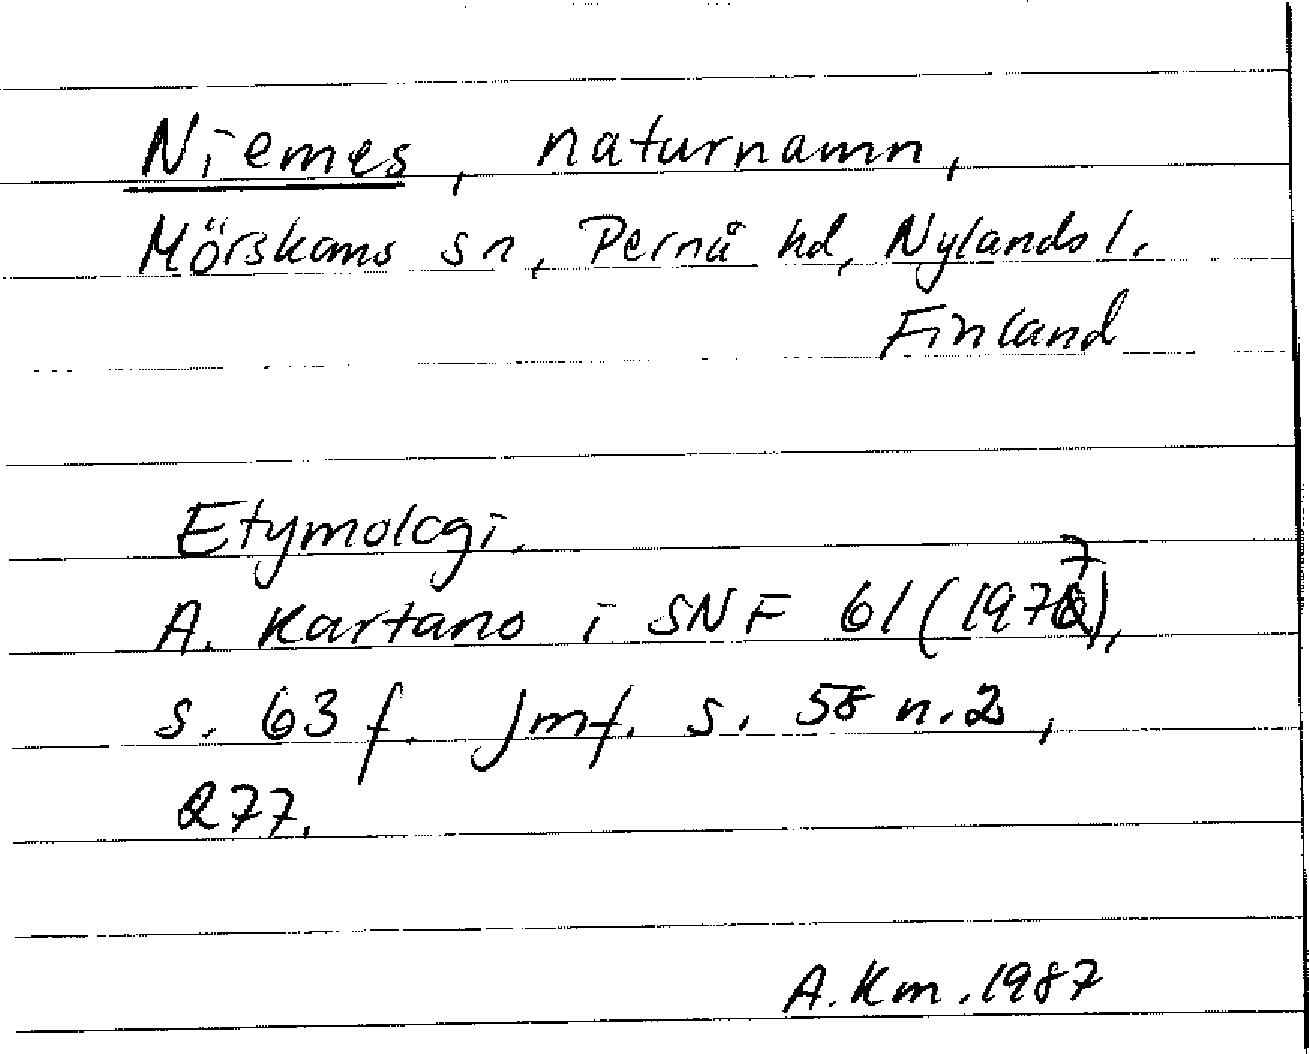 Niemes, naturnamn,
Mörskoms sn, Pernå hd, Nylands l.
Finland
Etymologi.
A. Kartano i SNF 61 (1977),
s. 63 f. Jmf. s. 58 n. 2,
277.
A.Km. 1987